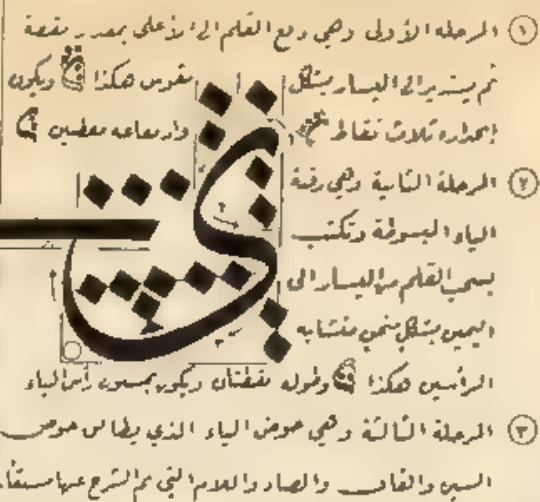 ١ المرحلة الأولى وهي دفع القلم الى الأعلى بمقدار نقطة
ثم يستدير الى اليسار بشكل مقوس هكذا ويكون
إنحداره ثلاث نقاط وارتفاعه نقطتين
٢ المرحلة الثانية وهي رقبة
الياء المبسوطة وتكتب
بسحب القلم من اليسار الى
اليمين بشكل منحن متشابه
الرأسين هكذا وطوله نقطتان ويكون رأس الياء
٣ المرحلة الثالثة وهي حوض الياء الذي يطابق حوض
السين والقاف والصاد واللام التي تم الشرح عنها مسبقاً